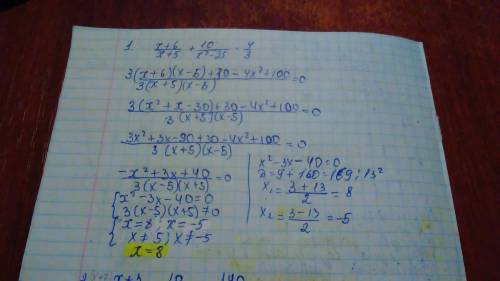 1. (x+6)/(x+5) + 10/(x²-25) - 4/3
(3(x+6)(x-5)+30-4x²+100)/(3(x+5)(x-5)) =0
(3(x²+x-30)+30-4x²+100)/(3(x+5)(x-5)) =0
(3x²+3x-90+30-4x²+100)/(3(x+5)(x-5)) =0
(-x²+3x+40)/(3(x-5)(x+5)) =0
{x²-3x-40=0
3(x-5)(x+5)≠0
{x=8; x=-5
x≠5; x≠-5
x=8
x²-3x-40=0
D=9+160=169; 13²
x₁=(3+13)/2=8
x₂=(3-13)/2=-5